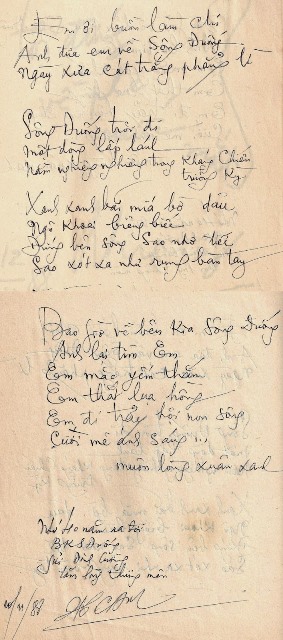 Em ơi buồn làm chi
Anh đưa em về Sông Đuống
Ngày xưa cát trắng phẳng lì
Sông Đuống trôi đi
Một dòng lấp lánh
Nằm nghiêng nghiêng trong Kháng Chiến
trường Kỳ
Xanh xanh bãi mía bờ dâu
Ngô Khoai biêng biếc
Đứng bên sông Sao nhớ tiếc
Sao xót xa như rụng bàn tay
Bao giờ về bên Kia Sông Đuống
Anh lại tìm Em
Em mặc yếm thắm
Em thắt lụa hồng
Em đi trẩy hội non sông
Cười mê ánh sáng...
muôn lòng xuân xanh
40 năm ra đời
BKSĐuống
tấm lòng
/11/88